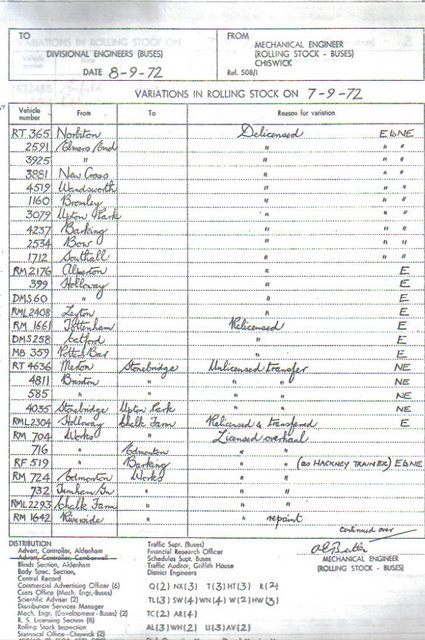 TO
DIVISIONAL ENGINEERS (BUSES)
DATE 8-9-72
FROM
MECHANICAL ENGINEER
(ROLLING STOCK - BUSES)
CHISWICK
Ref. 508/1
VARIATIONS IN ROLLING STOCK ON 7-9-72
Vehicle number From To Reason for variation
RT 365 Norbiton Delicensed E & NE
2591 Elmers End " " "
3925 " " " "
3881 New Cross " " "
4519 Wandsworth " " "
1160 Bromley " " "
3079 Upton Park " " "
4237 Barking " " "
2534 Bow " " "
1712 Southall " " "
RM 2176 Alperton " E
399 Holloway " E
DMS 60 " " E
RML 2408 Leyton " E
RM 1661 Tottenham Relicensed E
DMS 258 Catford " E
MB 359 Potters Bar " E
RT 4636 Merton Stonebridge Unlicensed transfer NE
4811 Brixton " " " NE
585 " " " " NE
4035 Stonebridge Upton Park " " NE
RML 2304 Holloway Chalk Farm Relicensed & transferred E
RM 704 Works " Licensed overhaul
716 " Edmonton " "
RF 519 " Barking " " (as HACKNEY TRAINER) E & NE
RM 724 Edmonton Works " "
732 Turnham Gn " " "
RML 2293 Chalk Farm " " "
RM 1642 Riverside " " repaint
continued over
DISTRIBUTION
Advert. Controller, Aldenham
Advert. Controller, Camberwell
Blinds Section, Aldenham
Body Spec. Section,
Central Record
Commercial Advertising Officer (6)
Cents Office (Mech. Engr.-Buses)
Scientific Adviser (2)
Distribution Services Manager
Mech. Engr. (Development - Buses) (2)
R. S. Licensing Section (4)
Rolling Stock Inspection
Statistical Office - Chiswick (2)
Traffic Supt. (Buses)
Financial Research Officer
Schedules Supt. Buses
Traffic Auditor, Griffith House
District Engineers
Q(2) NX(3) T(3) HT(3) R(2)
TL(3) SW(4) WN(4) W(2) HW(3)
TC(2) AR(4)
AL(3) WH(2) U(3) AV(2)
MECHANICAL ENGINEER
(ROLLING STOCK - BUSES)